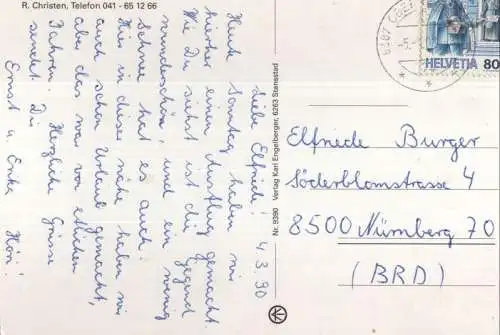 R. Christen, Telefon 041 - 65 12 66
4.3.90
Liebe Elfriede!
Heute Sonntag haben wir
hierher einen Ausflug gemacht.
Wie Du siehst ist die Gegend
wunderschön, und ein wenig
Schnee hat es auch.
Hier in dieser nähe haben wir
auch schon Urlaub gemacht,
aber das war vor etlichen
Jahren. Die Herzliche Grüsse
sendet Dir
Ernst u. Erika
Nr. 9390 Verlag Karl Engelberger, 6263 Stansstad
HELVETIA 80
Elfriede Burger
Söderblomstrasse 4
8500 Nürnberg 70
(BRD)